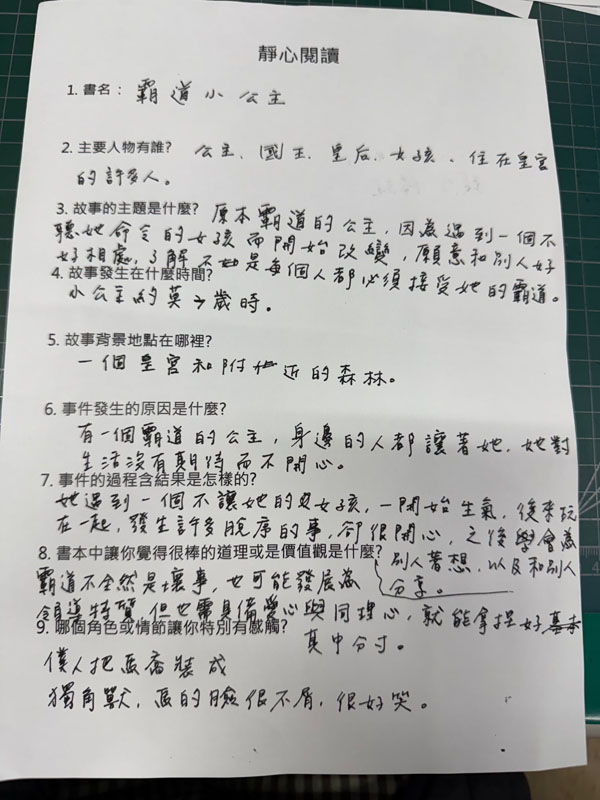 靜心閱讀
1. 書名： 霸道小公主
2. 主要人物有誰? 公主、國王、皇后、女孩、住在皇宮
的許多人。
3. 故事的主題是什麼? 原本霸道的公主，因為遇到一個不
聽她命令的女孩而開始改變，願意和別人好
好相處，了解不是每個人都必須接受她的霸道。
4. 故事發生在什麼時間?
小公主的某個歲時。
5. 故事背景地點在哪裡?
一個皇宮和附近的森林。
6. 事件發生的原因是什麼?
有一個霸道的公主，身邊的人都讓著她，她對
生活沒有期待而不開心。
7. 事件的過程含結果是怎樣的?
她遇到一個不讓她的女孩，一開始生氣，後來玩
在一起，發生許多脫序的事，卻很開心，之後學會為
別人著想，以及和別人
分享。
8. 書本中讓你覺得很棒的道理或是價值觀是什麼?
霸道不全然是壞事，也可能發展為
領導特質，但也需具備愛心與同理心，就能拿捏好
其中分寸。
9. 哪個角色或情節讓你特別有感觸?
僕人把馬喬裝成
獨角獸，馬的臉很不屑，很好笑。